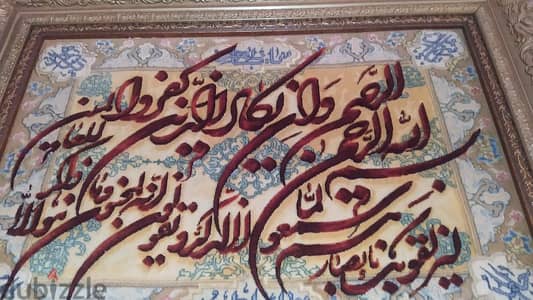 بسم الله الرحمن الرحیم
وان یکاد الذین کفروا
لیزلقونک بابصارهم
لما سمعوا الذکر و یقولون
انه لمجنون و ما هو الا
ذکر للعالمین
dubizzle